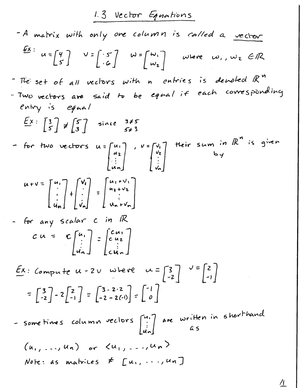 1.3 Vector Equations
- A matrix with only one column is called a vector
Ex: u = [4 5] v = [-.5 -6] w = [w₁ w₂] where w₁, w₂ ∈ ℝ
- The set of all vectors with n entries is denoted ℝⁿ
- Two vectors are said to be equal if each corresponding
entry is equal
Ex: [3 5] ≠ [5 3] since 3≠5 5≠3
- for two vectors u = [u₁ u₂ ⋮ uₙ], v = [v₁ v₂ ⋮ vₙ] their sum in ℝⁿ is given
by
u+v = [u₁ ⋮ uₙ] + [v₁ ⋮ vₙ] = [u₁+v₁ u₂+v₂ ⋮ uₙ+vₙ]
- for any scalar c in ℝ
cu = c[u₁ ⋮ uₙ] = [cu₁ cu₂ ⋮ cuₙ]
Ex: Compute u - 2v where u = [3 -2] v = [2 -1]
= [3 -2] - 2[2 -1] = [3-2·2 -2-2(-1)] = [-1 0]
- sometimes column vectors [u₁ ⋮ uₙ] are written in shorthand
as
(u₁, ..., uₙ) or <u₁, ..., uₙ>
Note: as matrices ≠ [u₁, ..., uₙ]
1